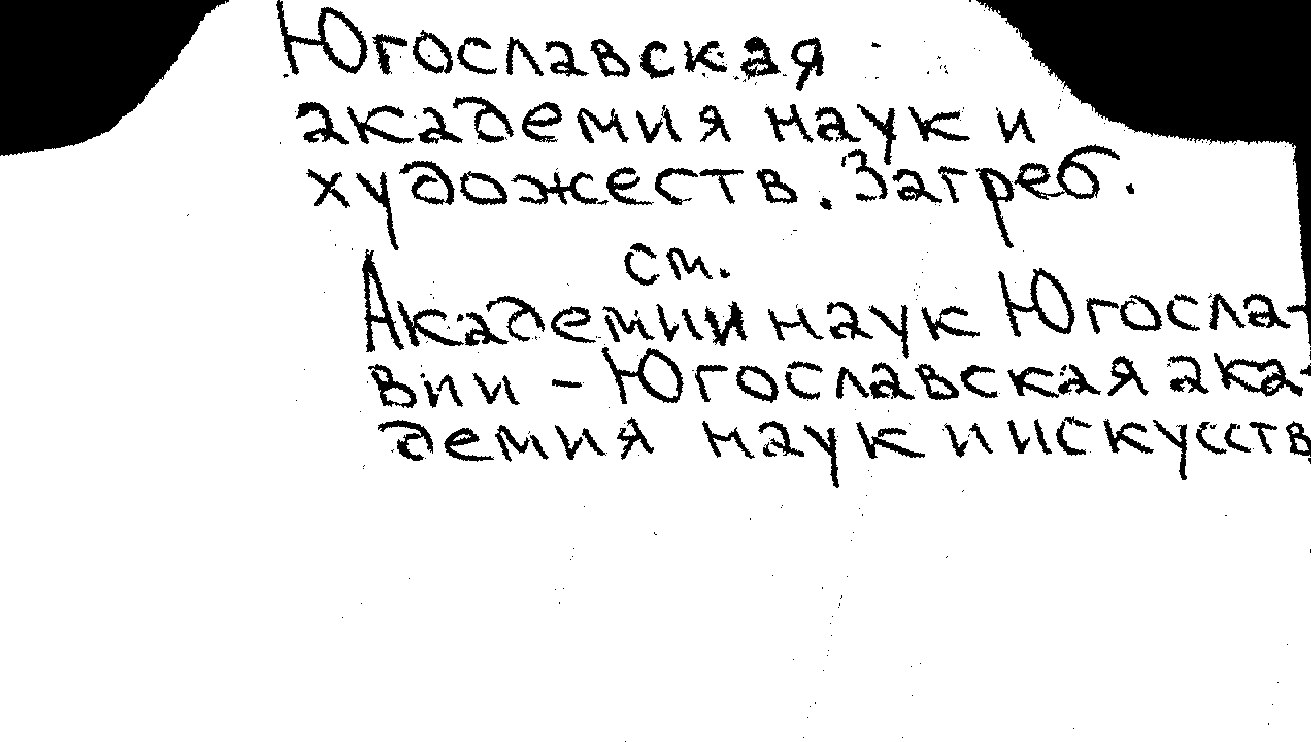 Югославская
академия наук и
художеств. Загреб.
см.
Академии наук Югосла-
вии – Югославская ака-
демия наук и искусств